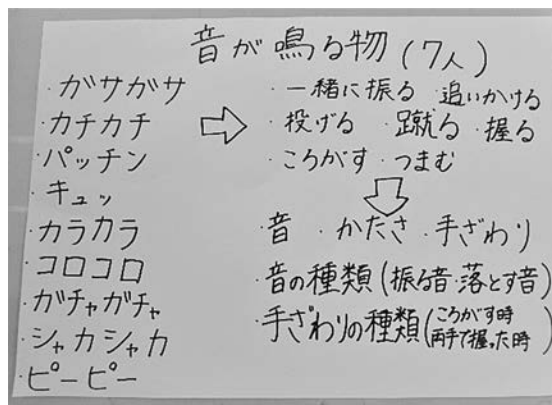 音が鳴る物(7人)
・ガサガサ
・カチカチ
・パッチン
・キュッ
・カラカラ
・コロコロ
・ガチャガチャ
・シャカシャカ
・ピーピー
・一緒に振る ・追いかける
・投げる ・蹴る ・握る
・ころがす ・つまむ
・音 ・かたさ ・手ざわり
・音の種類(振る音・落とす音)
・手ざわりの種類(ころがす時
両手で握った時)